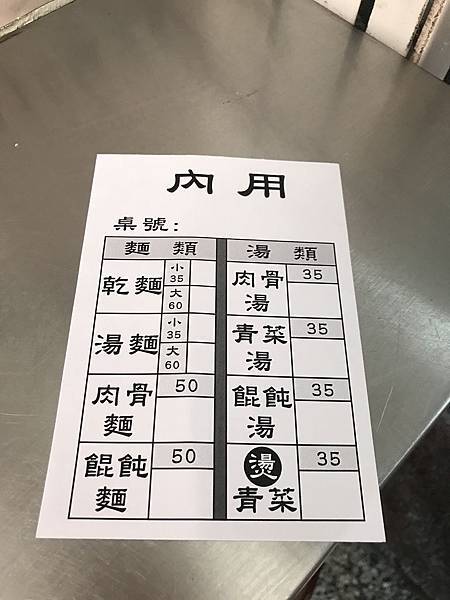 內用
桌號：
麵類
乾麵 小 35
大 60
湯麵 小 35
大 60
肉骨 50
麵
餛飩 50
麵
湯類
肉骨 35
湯
青菜 35
湯
餛飩 35
湯
燙 35
青菜